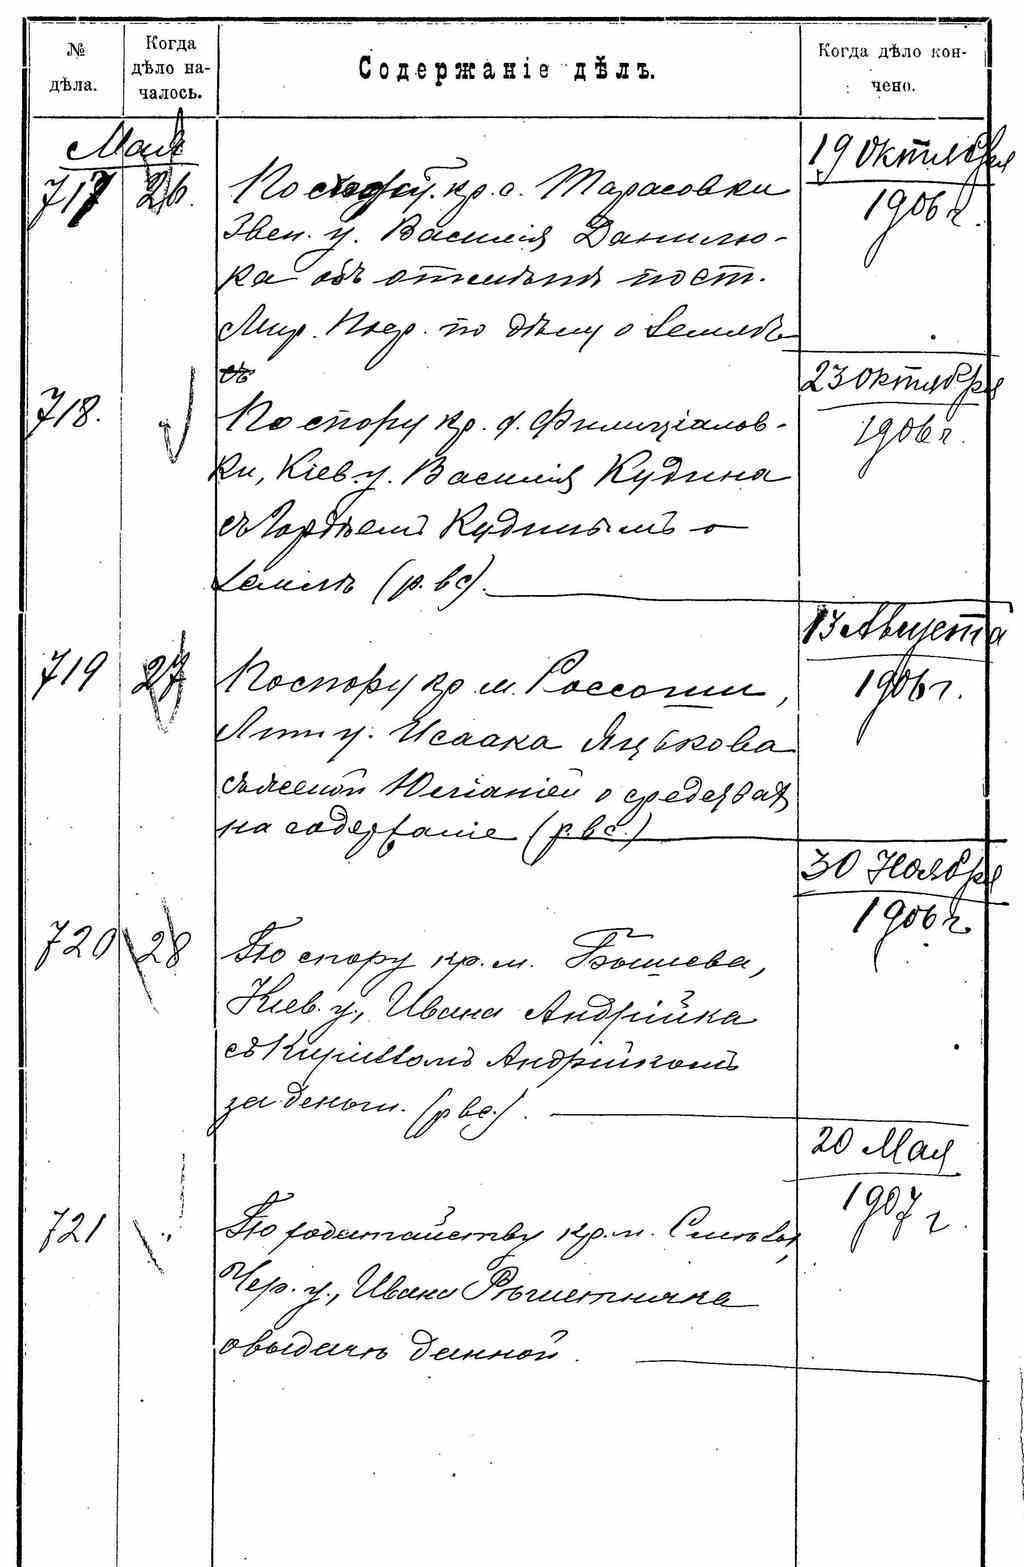 № дѣла.
Когда дѣло на-
чалось.
Содержаніе дѣлъ.
Когда дѣло кон-
чено.
Мая
717 26. По кр. с. Тарасовки
19 Октября
1906 г.
Звен. у. Василія Данилю-
ка объ отмѣнѣ пост.
Мир. Поср. по дѣлу о землѣ
съ
23 Октября
1906 г.
718. По спору кр. д.
ки, Кіев. у. Василія Кудина
съ Гордѣемъ Кудинымъ о
землѣ (р. вс).
13 Августа
1906 г.
719 27 По спору кр. м.
Лип у. Исаака Яцькова
съ женой о средствахъ
на содержаніе (р. вс.)
30 Ноября
1906 г.
720 28 По спору кр. м. Бышева,
Кіев. у., Ивана Андрійка
съ Кирилломъ Андрійкомъ
за деньги. (р вс.).
20 Мая
1907 г.
721 " По ходатайству кр. м. Смѣлы,
Чер. у., Ивана Рѣшетняка
о выдачѣ данной.